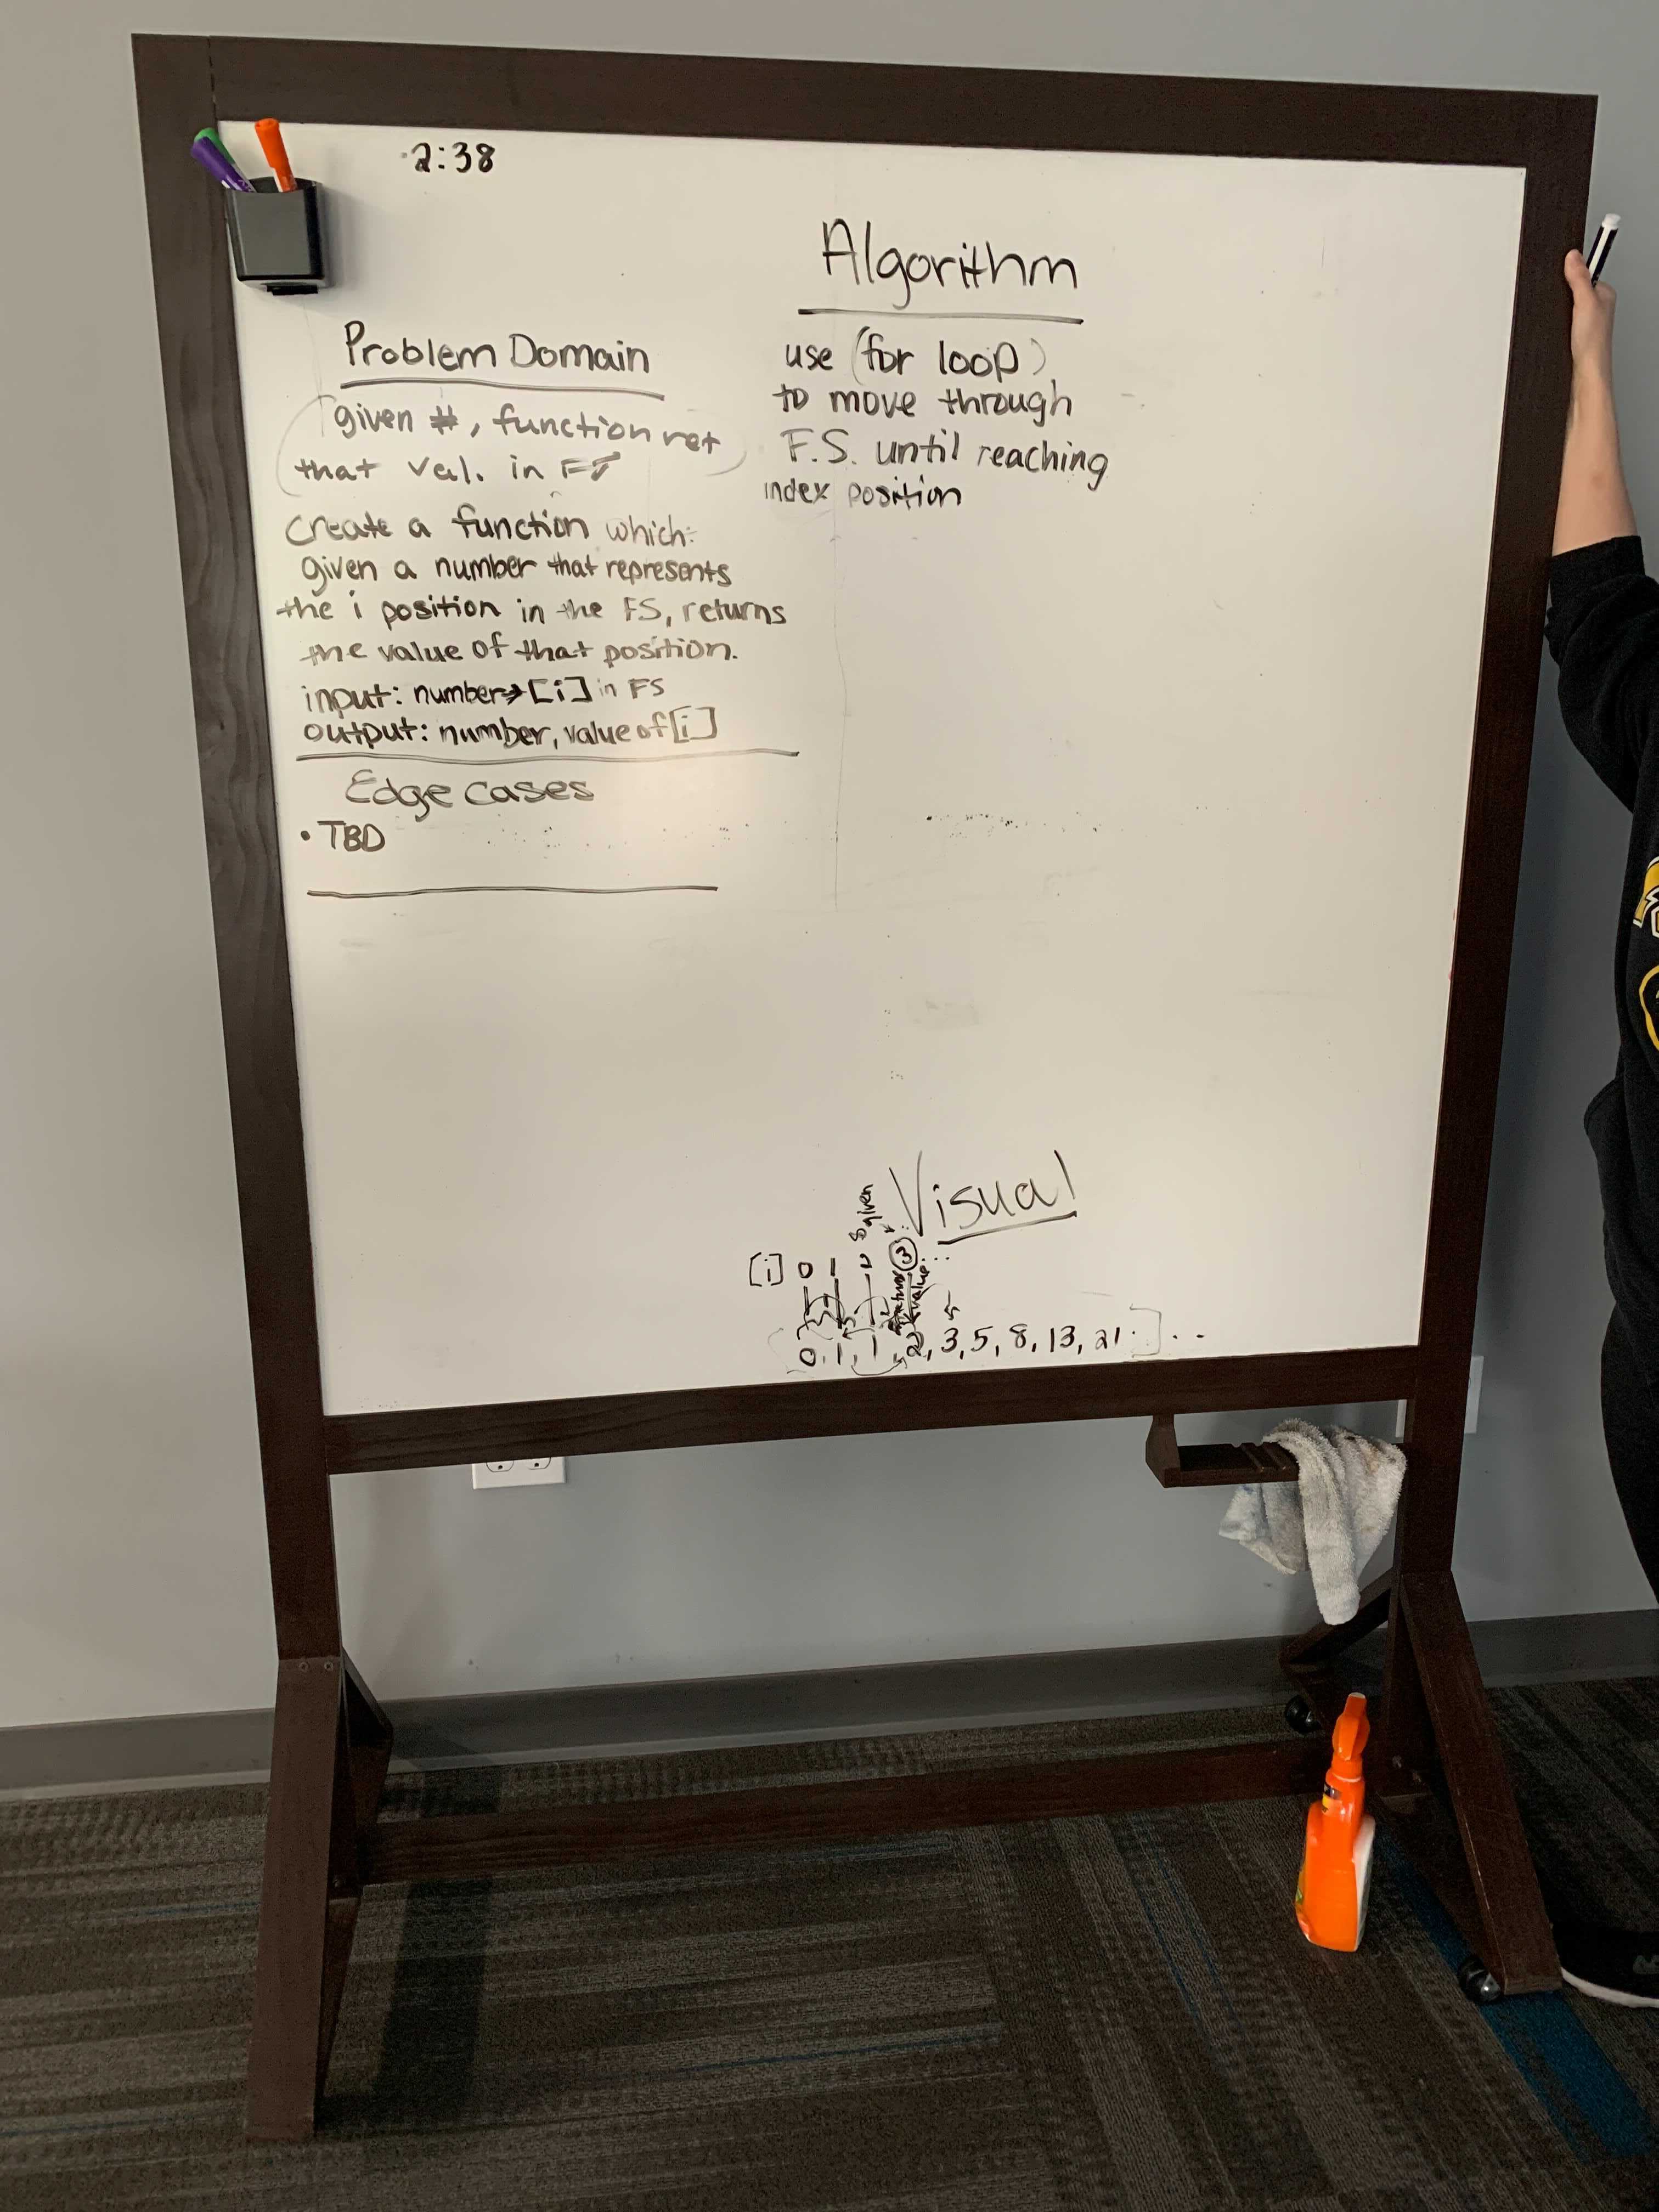 2:38
Problem Domain
given #, function ret
that val. in FS
create a function which:
given a number that represents
the i position in the FS, returns
the value of that position.
input: number → [i] in FS
output: number, value of [i]
Edge cases
• TBD
Algorithm
use (for loop)
to move through
F.S. until reaching
index position
Visual
given
[i] 0 1 2 3
value
0, 1, 1, 2, 3, 5, 8, 13, 21 ] ...